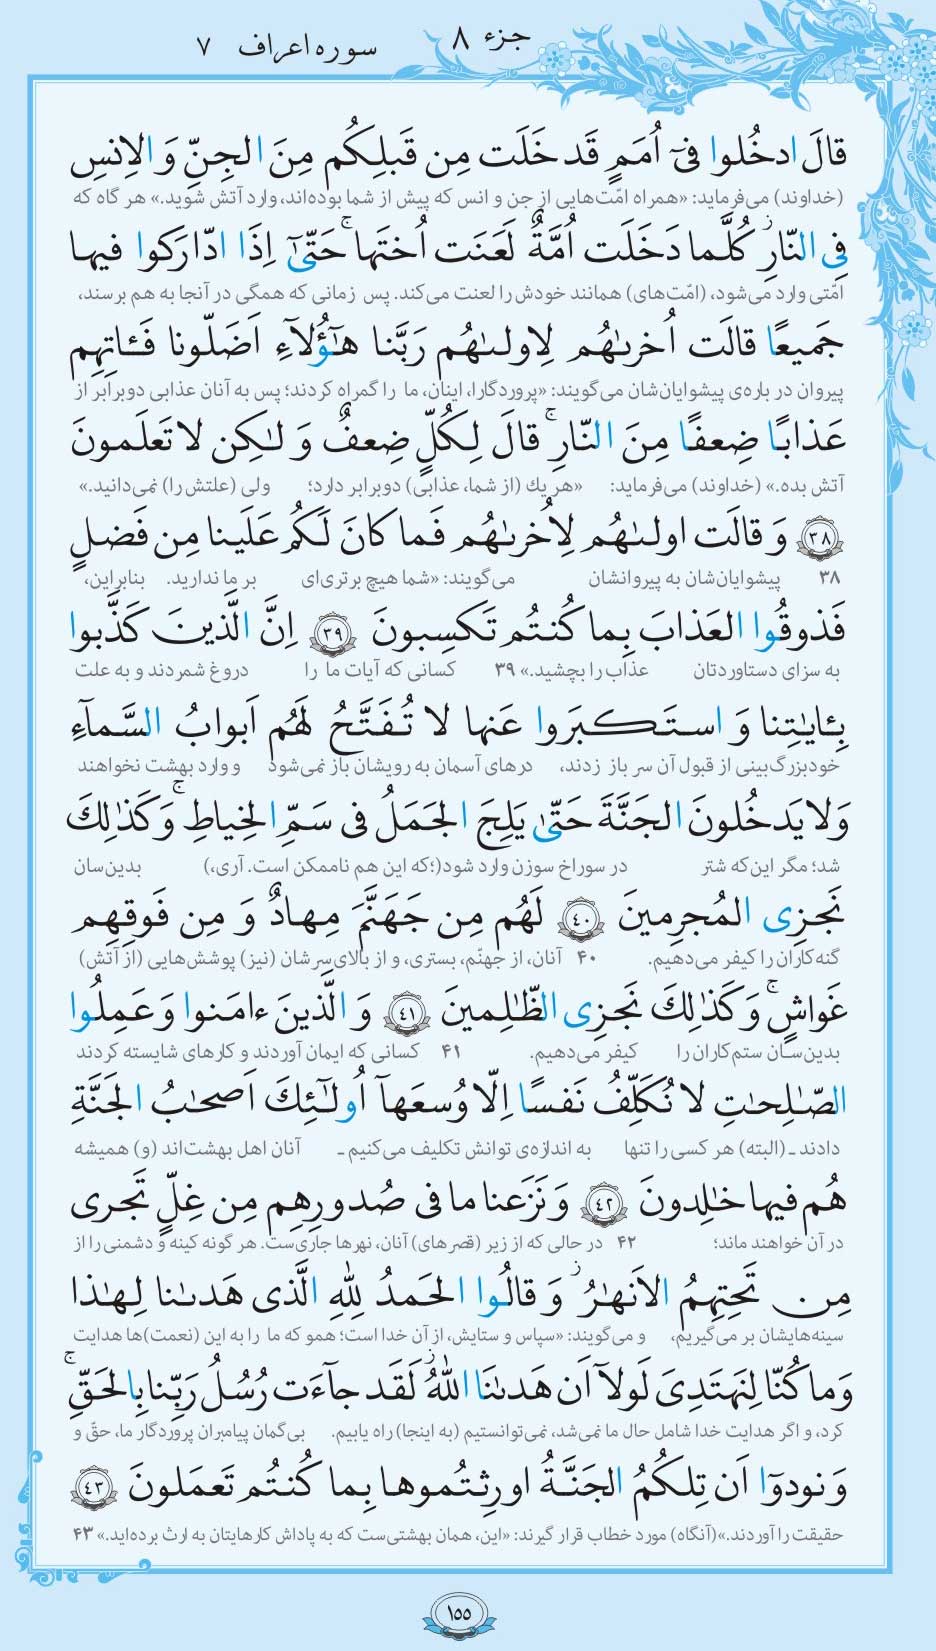 جزء ۸
سوره اعراف ۷
قالَ ادخُلوا فی اُمَمٍ قَد خَلَت مِن قَبلِكُم مِنَ الجِنِّ وَ الاِنسِ
(خداوند) می‌فرماید: «همراه امّت‌هایی از جن و انس که پیش از شما بوده‌اند، وارد آتش شوید.» هر گاه که
فِی النّارِ كُلَّما دَخَلَت اُمَّةٌ لَعَنَت اُختَها حَتّیٰ اِذَا ادّارَكوا فیها
امّتی وارد می‌شود، (امّت‌های) همانند خودش را لعنت می‌کند. پس زمانی که همگی در آنجا به هم برسند،
جَمیعًا قالَت اُخرىٰهُم لِاولىٰهُم رَبَّنا هٰٓؤُلآءِ اَضَلّونا فَـٔاتِهِم
پیروان در باره‌ی پیشوایان‌شان می‌گویند: «پروردگارا، اینان، ما را گمراه کردند؛ پس به آنان عذابی دوبرابر از
عَذابًا ضِعفًا مِنَ النّارِ قالَ لِكُلٍّ ضِعفٌ وَ لٰكِن لا تَعلَمونَ
آتش بده.» (خداوند) می‌فرماید: «هر یك (از شما، عذابی) دوبرابر دارد؛ ولی (علتش را) نمی‌دانید.»
﴿۳۸﴾ وَ قالَت اولىٰهُم لِاُخرىٰهُم فَما كانَ لَكُم عَلَینا مِن فَضلٍ
۳۸ پیشوایان‌شان به پیروانشان می‌گویند: «شما هیچ برتری‌ای بر ما ندارید. بنابراین،
فَذوقُوا العَذابَ بِما كُنتُم تَكسِبونَ ﴿۳۹﴾ اِنَّ الَّذینَ كَذَّبوا
به سزای دستاوردتان عذاب را بچشید.» ۳۹ کسانی که آیات ما را دروغ شمردند و به علت
بِـٔایٰتِنا وَ استَكبَروا عَنها لا تُفَتَّحُ لَهُم اَبوابُ السَّمآءِ
خودبزرگ‌بینی از قبول آن سر باز زدند، درهای آسمان به رویشان باز نمی‌شود و وارد بهشت نخواهند
وَلا یَدخُلونَ الجَنَّةَ حَتّیٰ یَلِجَ الجَمَلُ فی سَمِّ الخِیاطِ وَكَذٰلِكَ
شد؛ مگر این‌که شتر در سوراخ سوزن وارد شود(؛که این هم ناممکن است. آری،) بدین‌سان
نَجزِی المُجرِمینَ ﴿۴۰﴾ لَهُم مِن جَهَنَّمَ مِهادٌ وَ مِن فَوقِهِم
گنه‌کاران را کیفر می‌دهیم. ۴۰ آنان، از جهنّم، بستری، و از بالای‌سرشان (نیز) پوشش‌هایی (از آتش)
غَواشٍ وَ كَذٰلِكَ نَجزِی الظّٰلِمینَ ﴿۴۱﴾ وَ الَّذینَ ءامَنوا وَ عَمِلُوا
بدین‌سان ستم‌کاران را کیفر می‌دهیم. ۴۱ کسانی که ایمان آوردند و کارهای شایسته کردند
الصّٰلِحٰتِ لا نُكَلِّفُ نَفسًا اِلّا وُسعَهآ اُولٰٓئِكَ اَصحٰبُ الجَنَّةِ
دادند ـ (البته) هر کسی را تنها به اندازه‌ی توانش تکلیف می‌کنیم ـ آنان اهل بهشت‌اند (و) همیشه
هُم فیها خٰلِدونَ ﴿۴۲﴾ وَ نَزَعنا ما فی صُدورِهِم مِن غِلٍّ تَجری
در آن خواهند ماند؛ ۴۲ در حالی که از زیر (قصرهای) آنان، نهرها جاری‌ست. هر گونه کینه و دشمنی را از
مِن تَحتِهِمُ الاَنهٰرُ وَ قالُوا الحَمدُ لِلّٰهِ الَّذی هَدىٰنا لِهٰذا
سینه‌هایشان بر می‌گیریم، و می‌گویند: «سپاس و ستایش، از آن خدا است؛ همو که ما را به این (نعمت)ها هدایت
وَما كُنّا لِنَهتَدِیَ لَولآ اَن هَدىٰنَا اللّٰهُ لَقَد جآءَت رُسُلُ رَبِّنا بِالحَقِّ
کرد، و اگر هدایت خدا شامل حال ما نمی‌شد، نمی‌توانستیم (به اینجا) راه یابیم. بی‌گمان پیامبران پروردگار ما، حقّ و
وَ نودوٓا اَن تِلكُمُ الجَنَّةُ اورِثتُموها بِما كُنتُم تَعمَلونَ ﴿۴۳﴾
حقیقت را آوردند.»(آنگاه) مورد خطاب قرار گیرند: «این، همان بهشتی‌ست که به پاداش کارهایتان به ارث برده‌اید.» ۴۳
۱۵۵